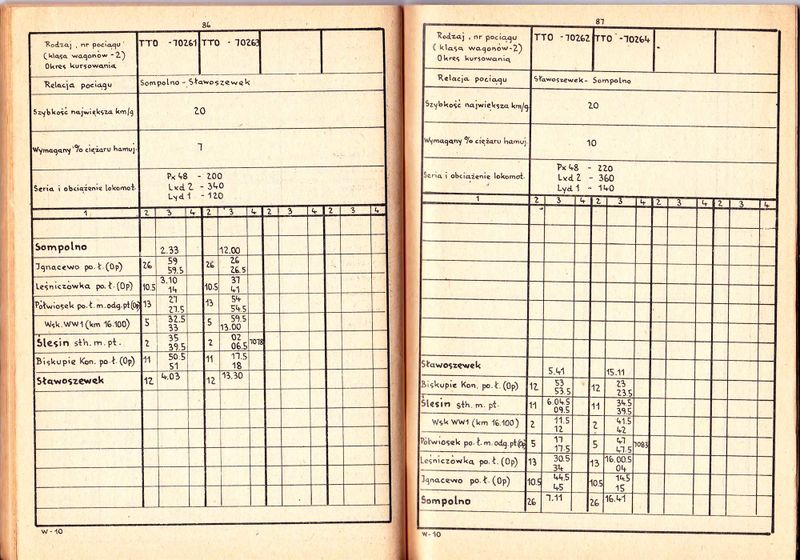 86
Rodzaj, nr pociągu
(klasa wagonów-2)
Okres kursowania
TTO -70261 TTO -70263
Relacja pociągu
Sompolno - Sławoszewek
Szybkość największa km/g
20
Wymagany % ciężaru hamuj.
7
Seria i obciążenie lokomot.
Px 48 - 200
Lxd 2 - 340
Lyd 1 - 120
1 2 3 4 2 3 4 2 3 4 2 3 4
Sompolno 2.33 12.00
Ignacewo po.ł. (Op) 26 59 59.5 26 26 26.5
Leśniczówka po.ł. (Op) 10.5 3.10 14 10.5 37 41
Półwiosek po.ł. m. odg. pt (Op) 13 27 27.5 13 54 54.5
Wsk. WW1 (km 16.100) 5 32.5 33 5 59.5 13.00
Ślesin sth. m. pt. 2 35 39.5 2 02 06.5 7078
Biskupie Kon. po.ł. (Op) 11 50.5 51 11 17.5 18
Sławoszewek 12 4.03 12 13.30
W-10
87
Rodzaj, nr pociągu
(klasa wagonów-2)
Okres kursowania
TTO -70262 TTO -70264
Relacja pociągu
Sławoszewek - Sompolno
Szybkość największa km/g
20
Wymagany % ciężaru hamuj.
10
Seria i obciążenie lokomot.
Px 48 - 220
Lxd 2 - 360
Lyd 1 - 140
1 2 3 4 2 3 4 2 3 4 2 3 4
Sławoszewek 5.41 15.11
Biskupie Kon. po.ł. (Op) 12 53 53.5 12 23 23.5
Ślesin sth. m. pt. 11 6.04.5 09.5 11 34.5 39.5
Wsk WW1 (km 16.100) 2 11.5 12 2 41.5 42
Półwiosek po.ł. m. odg. pt (Op) 5 17 17.5 5 47 47.5 7083
Leśniczówka po.ł. (Op) 13 30.5 34 13 16.00.5 04
Ignacewo po.ł. (Op) 10.5 44.5 45 10.5 14.5 15
Sompolno 26 7.11 26 16.41
W-10